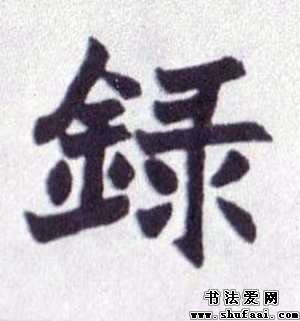 録
书法爱网
www.shufaai.com